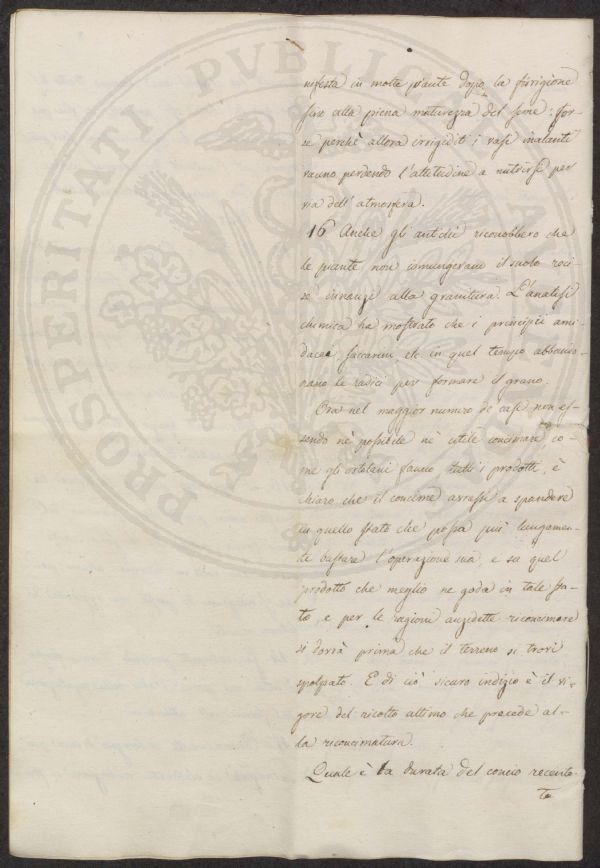 nifesta in molte piante dopo la fiorigione
fino alla piena maturezza del seme: for-
se perchè allora irrigiditi i vasi inalanti
vanno perdendo l'attitudine a nutrirsi per
via dell'atmosfera.
16 Anche gli antichi riconobbero che
le piante non ismungevano il suolo reci-
se innanzi alla granitura. L'analisi
chimica ha mostrato che i principii ami-
dacei, saccarini, etc. in quel tempo abbando-
nano le radici per formare il grano.
Ora nel maggior numero de casi non es-
sendo nè possibile nè utile concimare co-
me gli ortolani fanno tutti i prodotti, è
chiaro che il concime avrassi a spandere
in quello stato che possa più lungamen-
te bastare l'operazione sua, e su quel
prodotto che meglio ne goda in tale sta-
to, e per le ragioni anzidette riconcimare
si dovrà prima che il terreno si trovi
spolpato. E di ciò sicuro indizio è il vi-
gore del ricolto ultimo che precede al-
la riconcimatura.
Quale è la durata del concio recente-
te
PROSPERITATI PUBLICAE